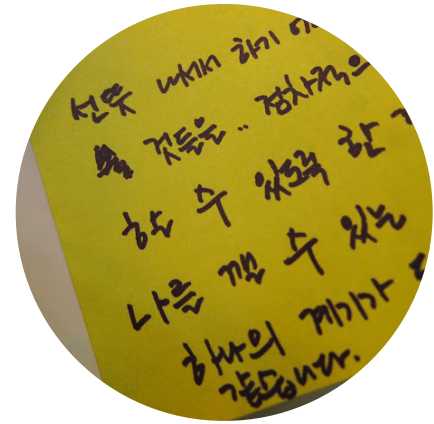 선뜻 나서서 하기 어
것들은.. 점차적으
할 수 있도록 한
나를 깰 수 있는
하나의 계기가
같습니다.